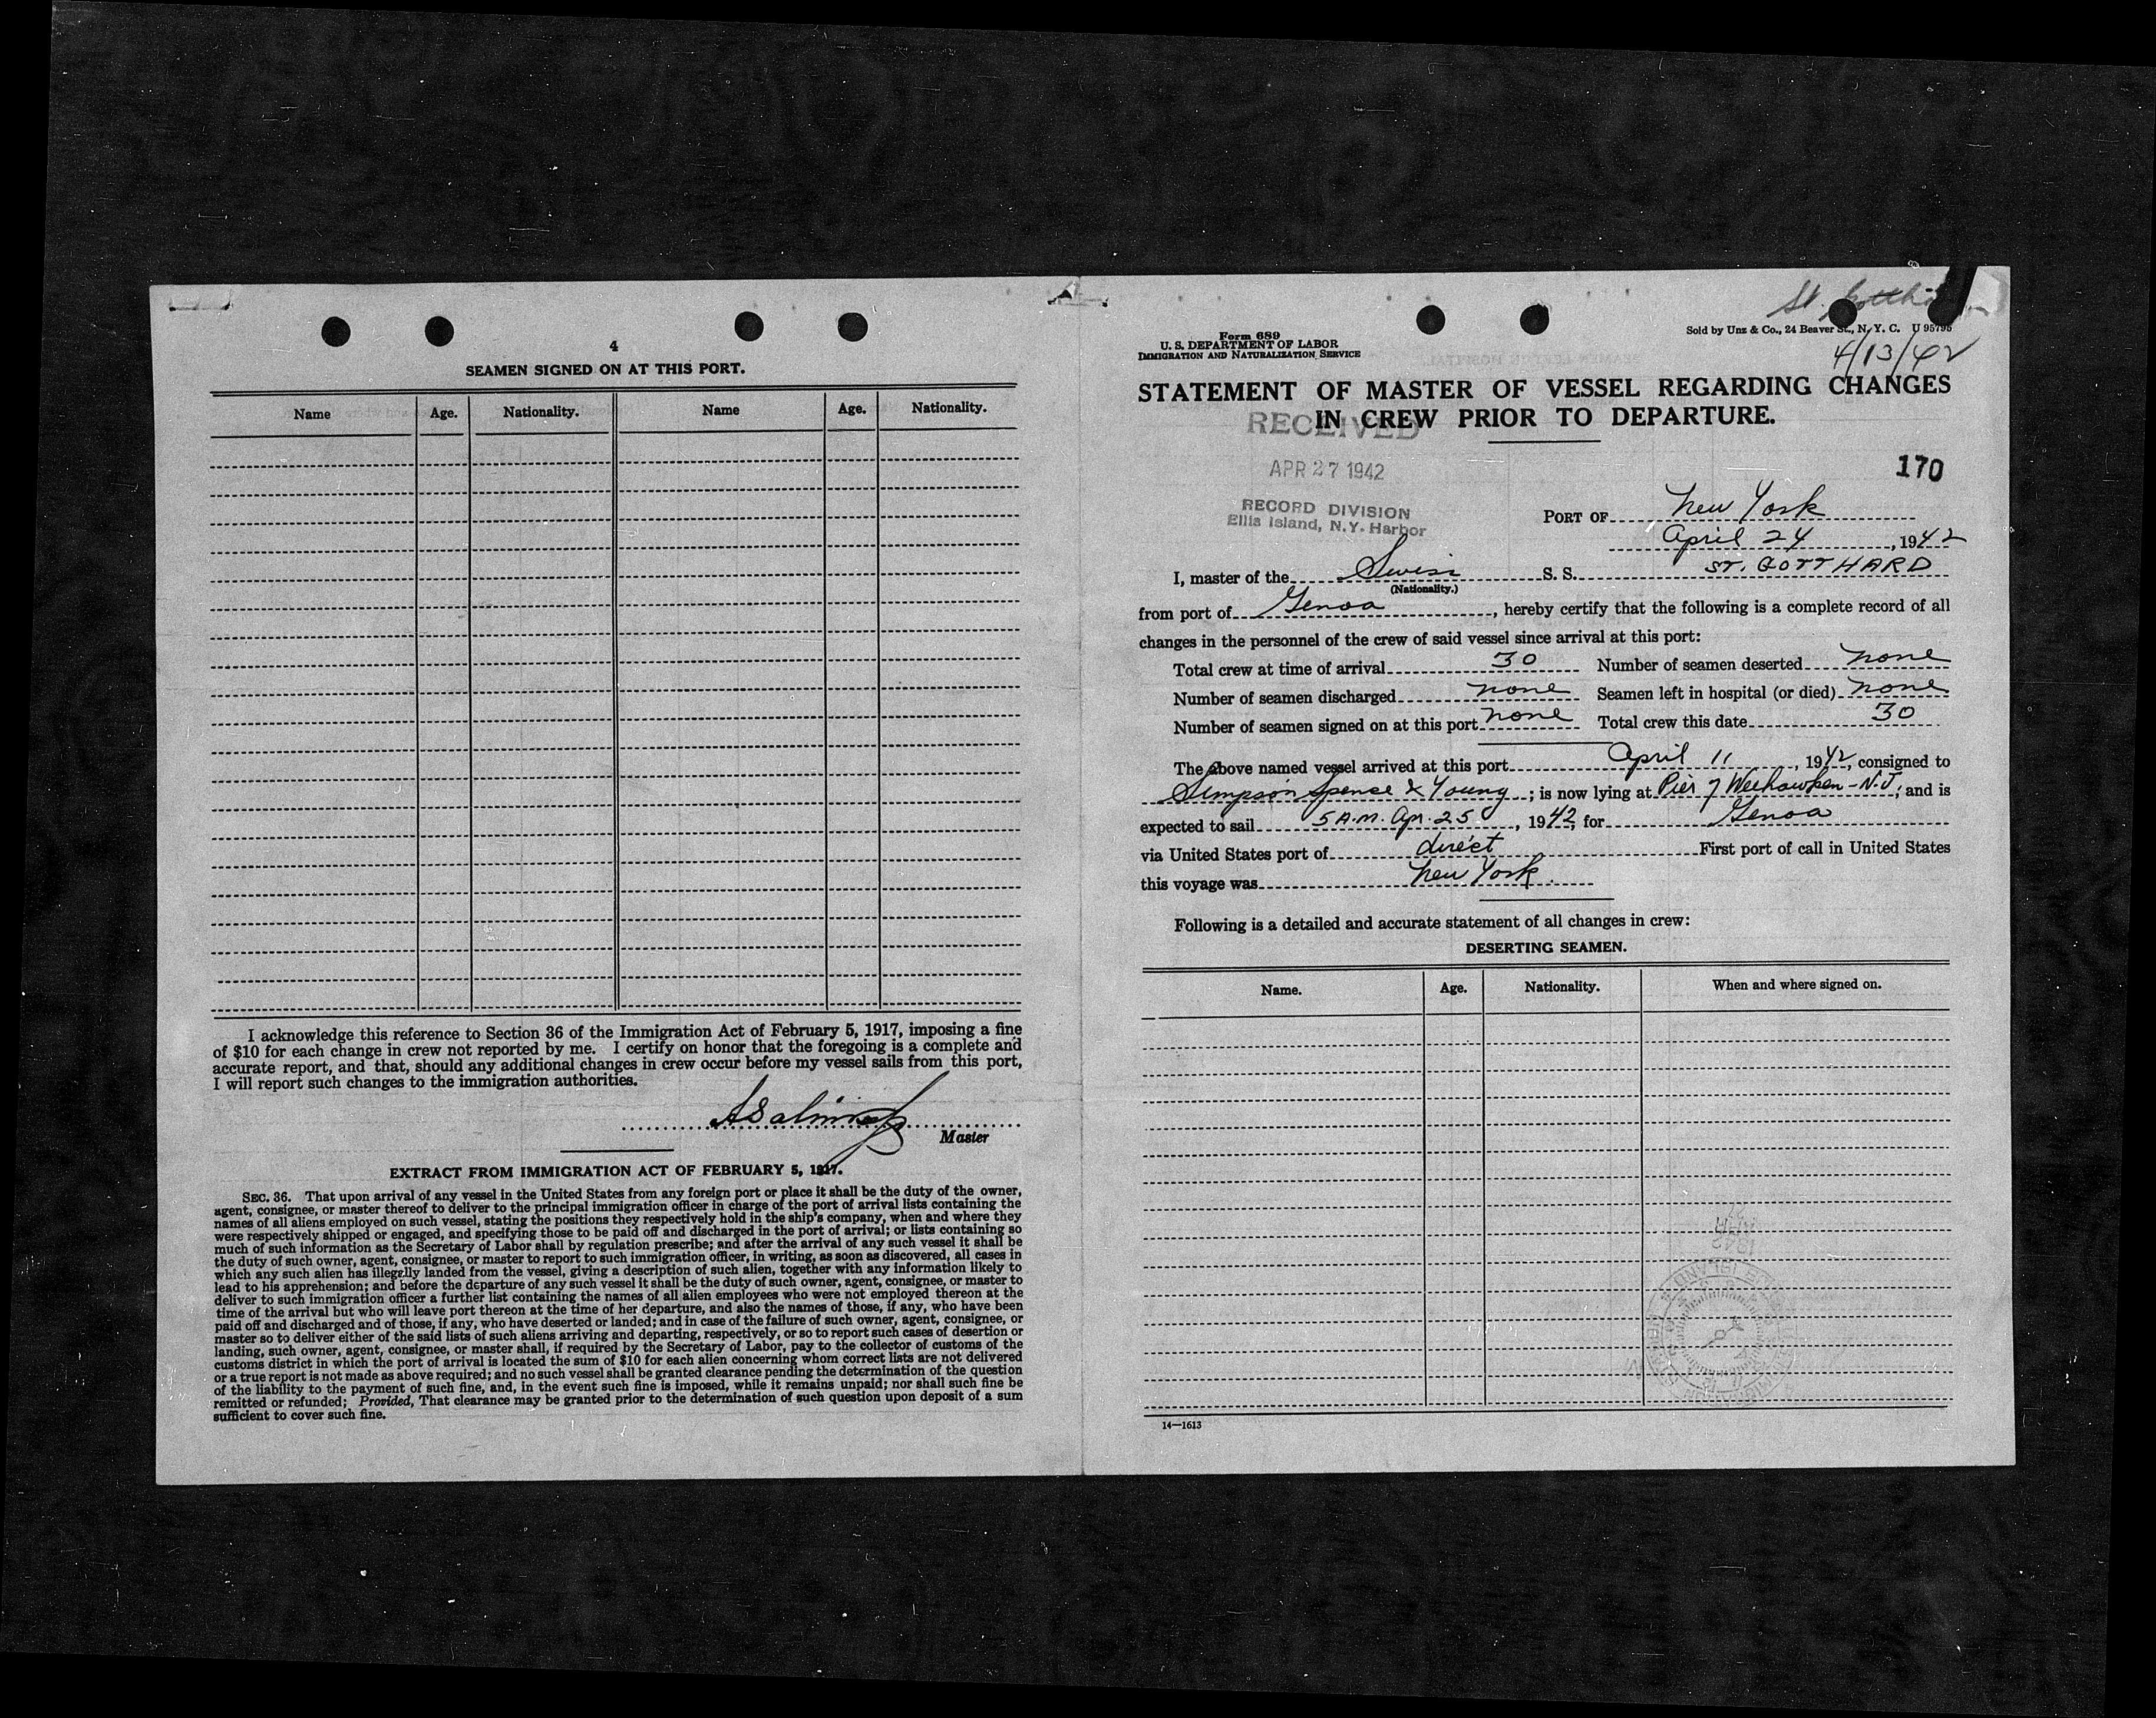 4
SEAMEN SIGNED ON AT THIS PORT.
Name Age. Nationality. Name Age. Nationality.
I acknowledge this reference to Section 36 of the Immigration Act of February 5, 1917, imposing a fine
of $10 for each change in crew not reported by me. I certify on honor that the foregoing is a complete and
accurate report, and that, should any additional changes in crew occur before my vessel sails from this port,
I will report such changes to the immigration authorities.
Master
EXTRACT FROM IMMIGRATION ACT OF FEBRUARY 5, 1917.
SEC. 36. That upon arrival of any vessel in the United States from any foreign port or place it shall be the duty of the owner,
agent, consignee, or master thereof to deliver to the principal immigration officer in charge of the port of arrival lists containing the
names of all aliens employed on such vessel, stating the positions they respectively hold in the ship's company, when and where they
were respectively shipped or engaged, and specifying those to be paid off and discharged in the port of arrival; or lists containing so
much of such information as the Secretary of Labor shall by regulation prescribe; and after the arrival of any such vessel it shall be
the duty of such owner, agent, consignee, or master to report to such immigration officer, in writing, as soon as discovered, all cases in
which any such alien has illegally landed from the vessel, giving a description of such alien, together with any information likely to
lead to his apprehension; and before the departure of any such vessel it shall be the duty of such owner, agent, consignee, or master to
deliver to such immigration officer a further list containing the names of all alien employees who were not employed thereon at the
time of the arrival but who will leave port thereon at the time of her departure, and also the names of those, if any, who have been
paid off and discharged and of those, if any, who have deserted or landed; and in case of the failure of such owner, agent, consignee, or
master so to deliver either of the said lists of such aliens arriving and departing, respectively, or so to report such cases of desertion or
landing, such owner, agent, consignee, or master shall, if required by the Secretary of Labor, pay to the collector of customs of the
customs district in which the port of arrival is located the sum of $10 for each alien concerning whom correct lists are not delivered
or a true report is not made as above required; and no such vessel shall be granted clearance pending the determination of the question
of the liability to the payment of such fine, and, in the event such fine is imposed, while it remains unpaid; nor shall such fine be
remitted or refunded; Provided, That clearance may be granted prior to the determination of such question upon deposit of a sum
sufficient to cover such fine.
St.
Form 689
U. S. DEPARTMENT OF LABOR
IMMIGRATION AND NATURALIZATION SERVICE
Sold by Unz & Co., 24 Beaver St., N. Y. C. U 95795
4/13/42
STATEMENT OF MASTER OF VESSEL REGARDING CHANGES
IN CREW PRIOR TO DEPARTURE.
RECEIVED
APR 27 1942
RECORD DIVISION
Ellis Island, N.Y. Harbor
170
PORT OF New York
April 24, 1942
I, master of the Swiss S. S. ST. GOTTHARD
(Nationality.)
from port of Genoa, hereby certify that the following is a complete record of all
changes in the personnel of the crew of said vessel since arrival at this port:
Total crew at time of arrival 30 Number of seamen deserted none
Number of seamen discharged none Seamen left in hospital (or died) none
Number of seamen signed on at this port none Total crew this date 30
The above named vessel arrived at this port April 11, 1942, consigned to
Simpson Spence & Young; is now lying at Pier 7 Weehawken - N.J., and is
expected to sail 5 A.M. Apr. 25, 1942, for Genoa
via United States port of direct First port of call in United States
this voyage was New York.
Following is a detailed and accurate statement of all changes in crew:
DESERTING SEAMEN.
Name. Age. Nationality. When and where signed on.
14—1613